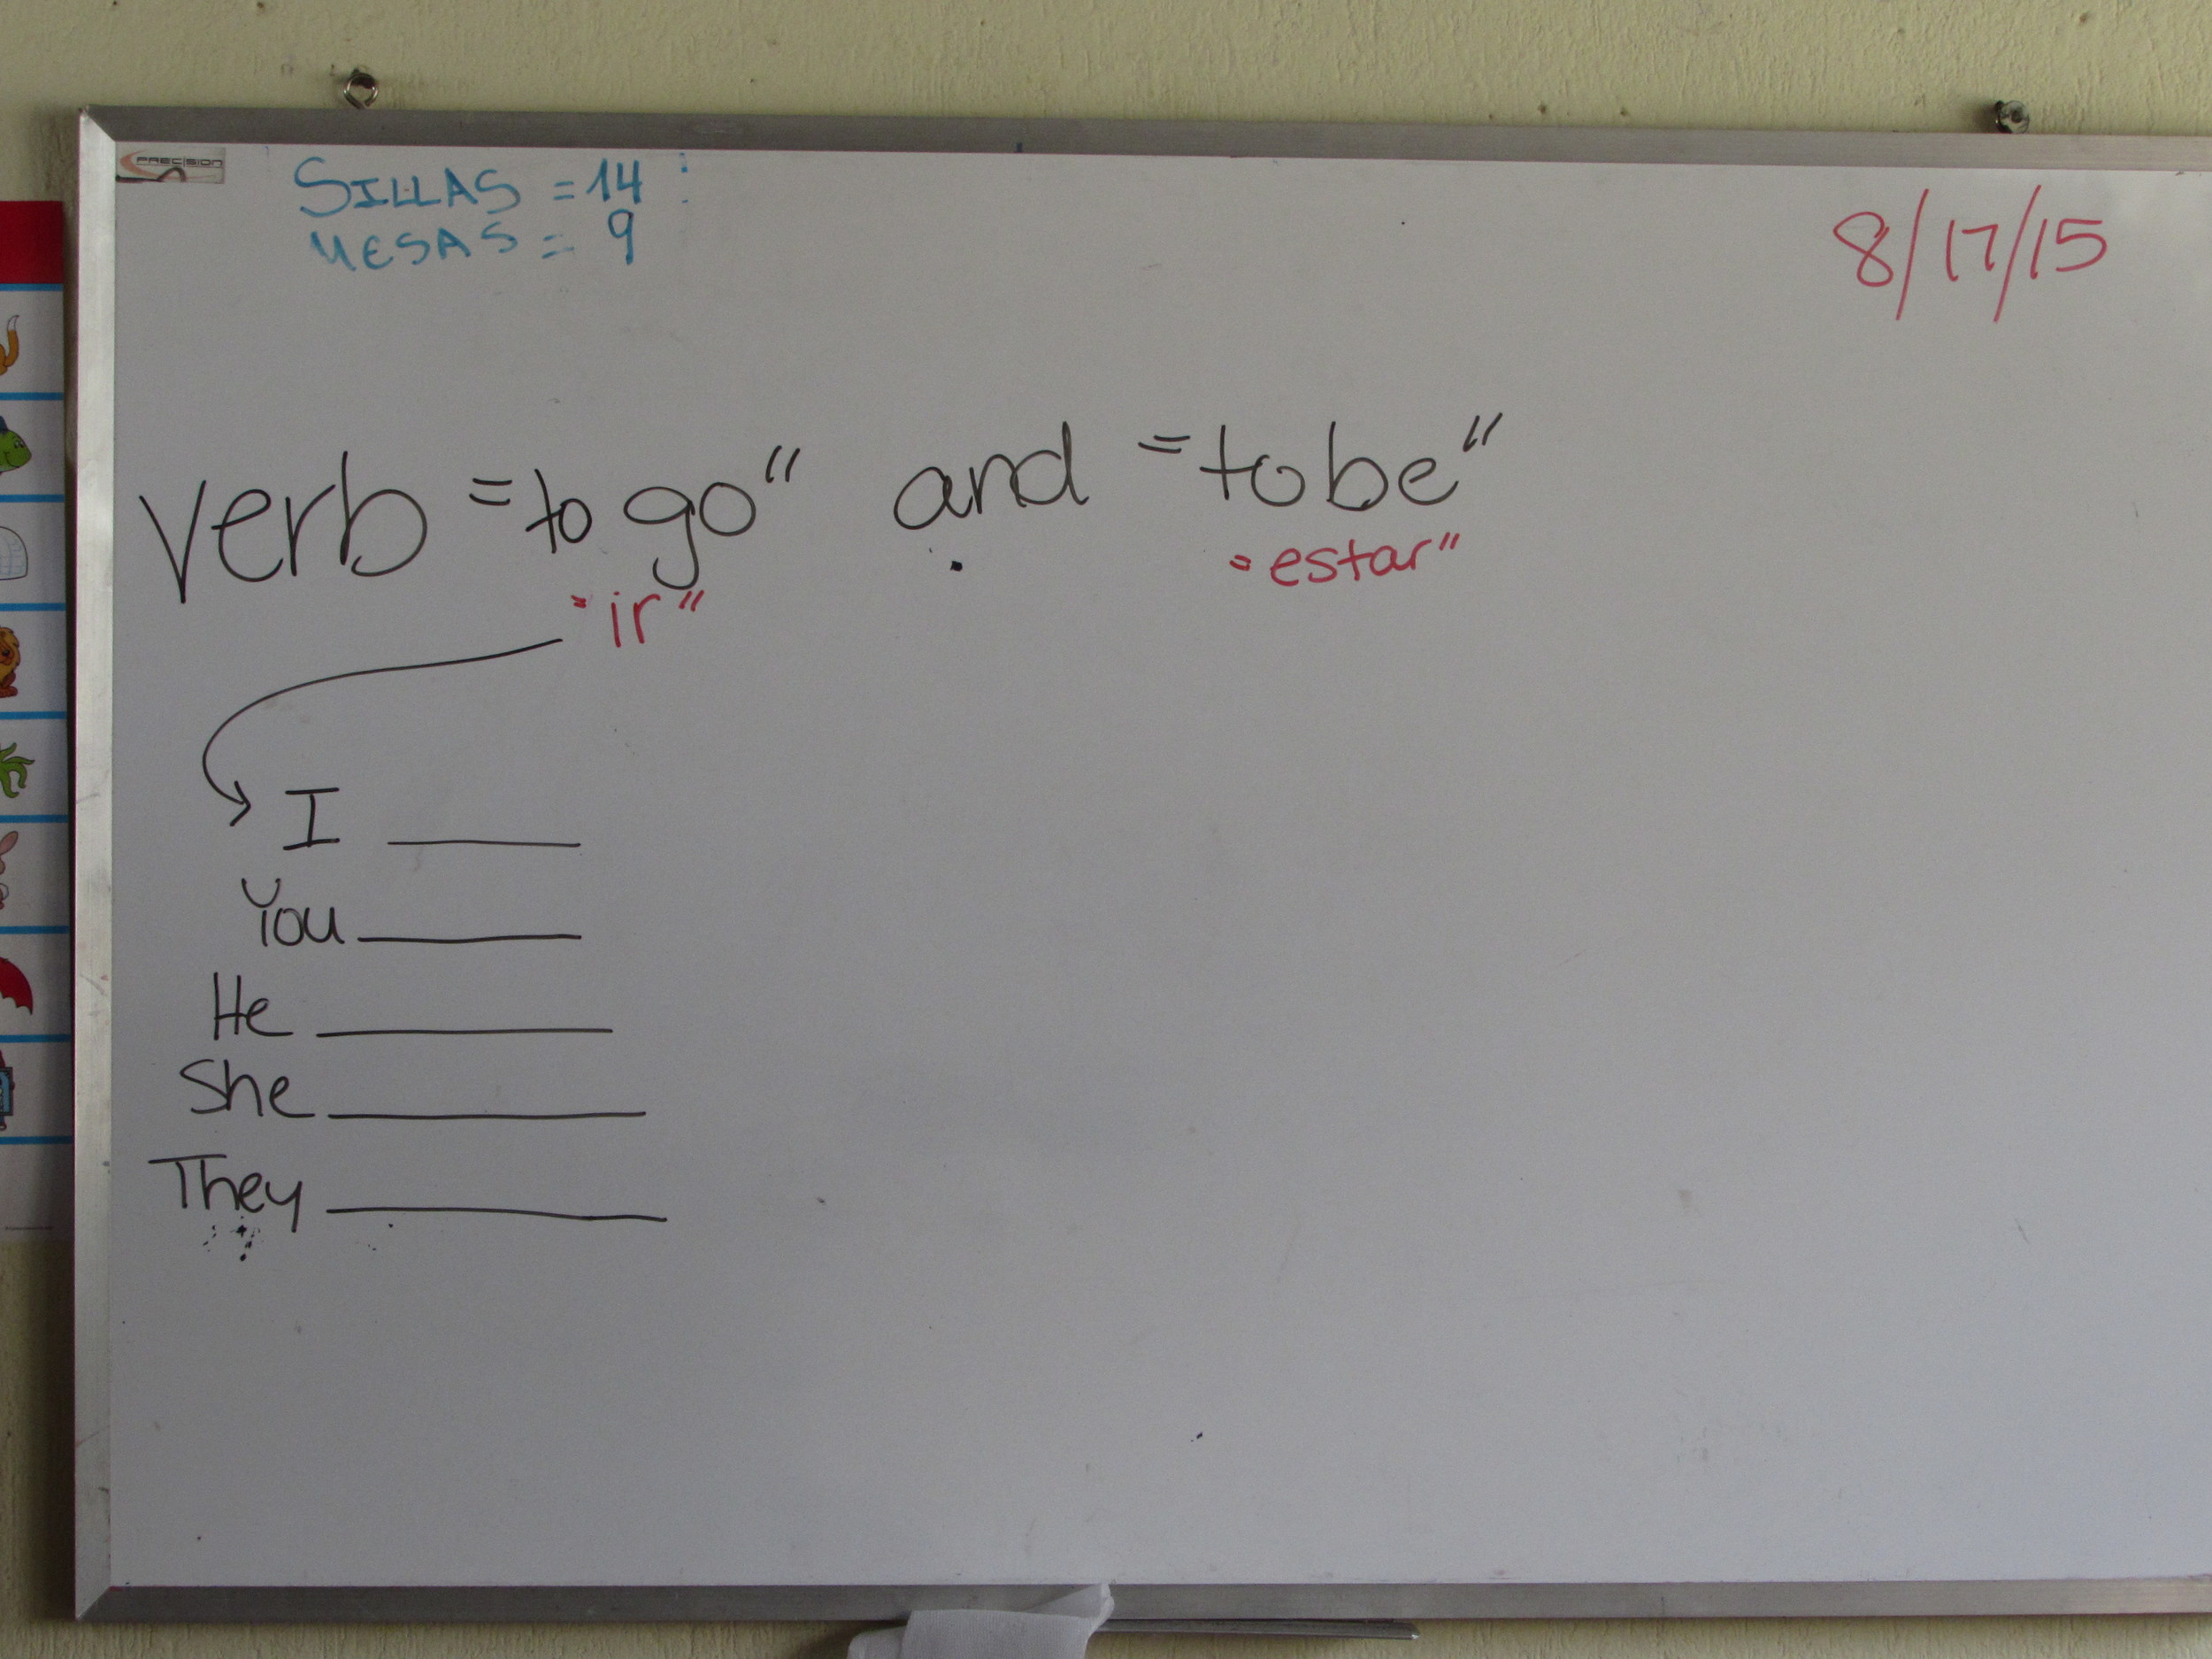 PRECISION
SILLAS = 14
MESAS = 9
8/17/15
verb "to go" and "to be"
"ir" "estar"
I ______
You ______
He ______
She ______
They ______